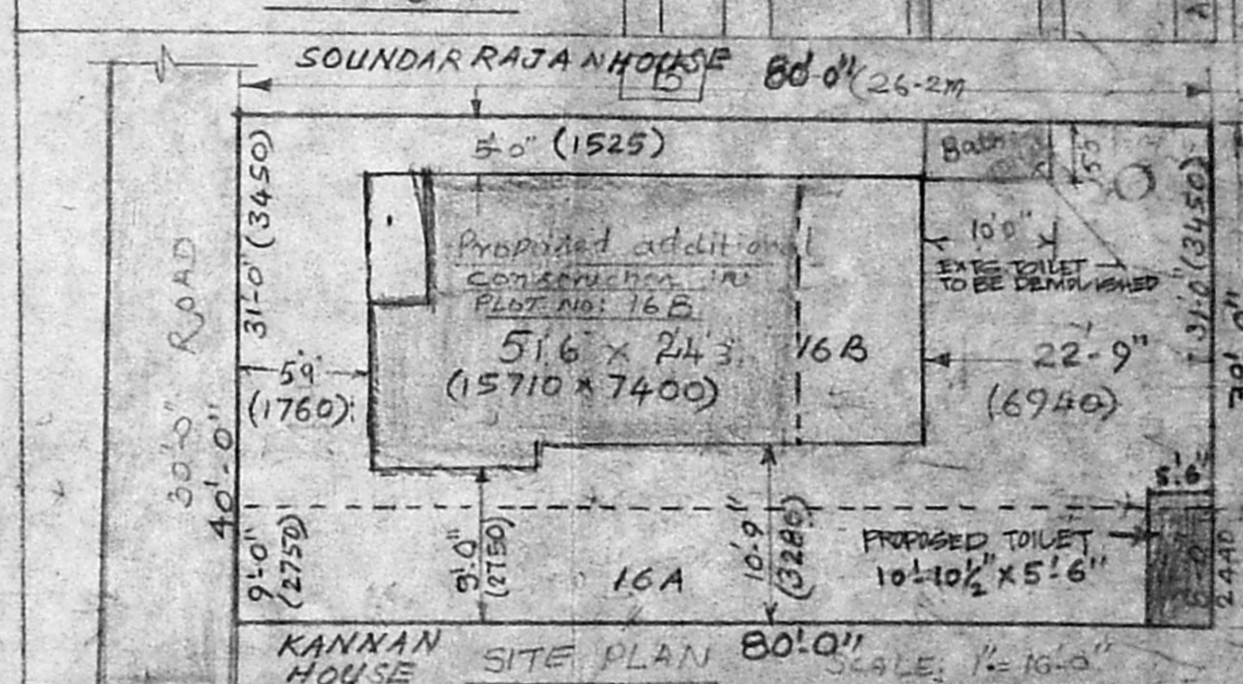 SOUNDARRAJAN HOUSE
15
80'-0" (26-2m
5'-0" (1525)
Bath
5'5"
31'-0" (3450)
31'-0" (3450)
Proposed additional
construction in
PLOT. NO: 16B
51'6 x 24'3
(15710 x 7400)
16B
10'0"
EXTG TOILET
TO BE DEMOLISHED
22'-9"
(6940)
5'9"
(1760)
30'-0" ROAD
40'-0"
9'-0"
(2750)
9'-0"
(2750)
16A
10'-9"
(3280)
5'-6"
PROPOSED TOILET
10'-10½" x 5'-6"
8'-0"
2440
KANNAN
HOUSE
SITE PLAN
80'-0"
SCALE: 1"= 16'-0"